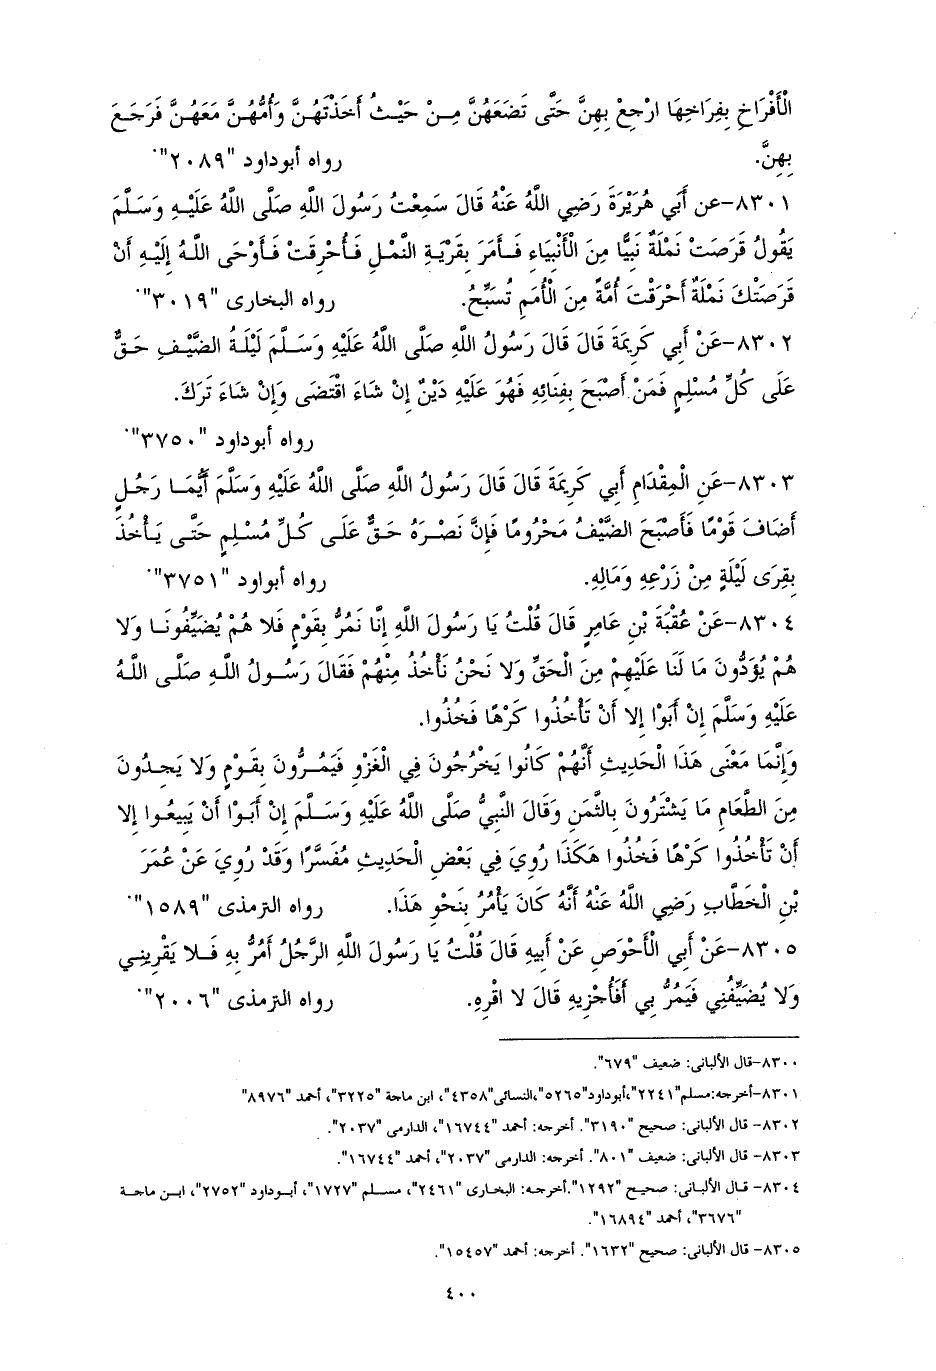 الْأَفْرَاخِ بِفِرَاخِهَا ارْجِعْ بِهِنَّ حَتَّى تَضَعَهُنَّ مِـنْ حَيْـثُ أَخَذْتَهُـنَّ وَأُمُّهُـنَّ مَعَهُـنَّ فَرَجَـعَ
بِهِنَّ. رواه أبوداود "٢٠٨٩".
٨٣٠١-عن أَبِي هُرَيْرَةَ رَضِي اللَّهُ عَنْهُ قَالَ سَمِعْتُ رَسُولَ اللهِ صَلَّى اللَّهُ عَلَيْـهِ وَسَـلَّمَ
يَقُولُ قَرَصَتْ نَمْلَةٌ نَبِيًّا مِنَ الْأَنْبِيَاءِ فَـأَمَرَ بِقَرْيَـةِ النَّمْـلِ فَـأُحْرِقَتْ فَـأَوْحَى اللَّـهُ إِلَيْـهِ أَنْ
قَرَصَتْكَ نَمْلَةٌ أَحْرَقْتَ أُمَّةً مِنَ الْأُمَمِ تُسَبِّحُ. رواه البخارى "٣٠١٩".
٨٣٠٢-عَنْ أَبِي كَرِيمَةَ قَالَ قَالَ رَسُولُ اللهِ صَلَّى اللَّهُ عَلَيْهِ وَسَـلَّمَ لَيْلَـةُ الضَّيْـفِ حَـقٌّ
عَلَى كُلِّ مُسْلِمٍ فَمَنْ أَصْبَحَ بِفِنَائِهِ فَهُوَ عَلَيْهِ دَيْنٌ إِنْ شَاءَ اقْتَضَى وَإِنْ شَاءَ تَرَكَ.
رواه أبوداود "٣٧٥٠".
٨٣٠٣-عَنِ الْمِقْدَامِ أَبِي كَرِيمَةَ قَالَ قَالَ رَسُولُ اللهِ صَلَّى اللَّهُ عَلَيْهِ وَسَلَّمَ أَيُّمَـا رَجُـلٍ
أَضَافَ قَوْمًا فَأَصْبَحَ الضَّيْفُ مَحْرُومًا فَإِنَّ نَصْـرَهُ حَـقٌّ عَلَـى كُـلِّ مُسْـلِمٍ حَتَّـى يَـأْخُذَ
بِقِرَى لَيْلَةٍ مِنْ زَرْعِهِ وَمَالِهِ. رواه أبواود "٣٧٥١".
٨٣٠٤-عَنْ عُقْبَةَ بْنِ عَامِرٍ قَالَ قُلْتُ يَا رَسُولَ اللهِ إِنَّا نَمُرُّ بِقَوْمٍ فَلا هُمْ يُضَيِّفُونَـا وَلا
هُمْ يُؤَدُّونَ مَا لَنَا عَلَيْهِمْ مِنَ الْحَقِّ وَلا نَحْنُ نَأْخُذُ مِنْهُمْ فَقَالَ رَسُـولُ اللَّـهِ صَلَّـى اللَّـهُ
عَلَيْهِ وَسَلَّمَ إِنْ أَبَوْا إِلا أَنْ تَأْخُذُوا كَرْهًا فَخُذُوا.
وَإِنَّمَا مَعْنَى هَذَا الْحَدِيثِ أَنَّهُمْ كَانُوا يَخْرُجُونَ فِي الْغَزْوِ فَيَمُـرُّونَ بِقَـوْمٍ وَلا يَجِـدُونَ
مِنَ الطَّعَامِ مَا يَشْتَرُونَ بِالثَّمَنِ وَقَالَ النَّبِيُّ صَلَّى اللَّهُ عَلَيْهِ وَسَـلَّمَ إِنْ أَبَوْا أَنْ يَبِيعُـوا إِلا
أَنْ تَأْخُذُوا كَرْهًا فَخُذُوا هَكَذَا رُوِيَ فِي بَعْضِ الْحَدِيثِ مُفَسَّرًا وَقَدْ رُوِيَ عَنْ عُمَرَ
بْنِ الْخَطَّابِ رَضِي اللَّهُ عَنْهُ أَنَّهُ كَانَ يَأْمُرُ بِنَحْوِ هَذَا. رواه الترمذى "١٥٨٩".
٨٣٠٥-عَنْ أَبِي الْأَحْوَصِ عَنْ أَبِيهِ قَالَ قُلْتُ يَا رَسُولَ اللهِ الرَّجُلُ أَمُرُّ بِهِ فَـلا يَقْرِينِـي
وَلا يُضَيِّفُنِي فَيَمُرُّ بِي أَفَأُجْزِيهِ قَالَ لا اقْرِهِ. رواه الترمذى "٢٠٠٦".
٨٣٠٠-قال الألبانى: ضعيف "٦٧٩".
٨٣٠١-أخرجه:مسلم"٢٢٤١"،أبوداود"٥٢٦٥"،النسائى"٤٣٥٨"، ابن ماجة "٣٢٢٥"، أحمد "٨٩٧٦"
٨٣٠٢- قال الألبانى: صحيح "٣١٩٠". أخرجه: أحمد "١٦٧٤٤"، الدارمى "٢٠٣٧".
٨٣٠٣- قال الألبانى: ضعيف "٨٠١". أخرجه: الدارمى "٢٠٣٧"، أحمد "١٦٧٤٤".
٨٣٠٤- قـال الألبـانى: صحيـح "١٢٩٢".أخرجـه: البخـارى "٢٤٦١"، مسـلم "١٧٢٧"، أبـوداود "٢٧٥٢"، ابـن ماجـة
"٣٦٧٦"، أحمد "١٦٨٩٤".
٨٣٠٥- قال الألبانى: صحيح "١٦٣٢". أخرجه: أحمد "١٥٤٥٧".
٤٠٠